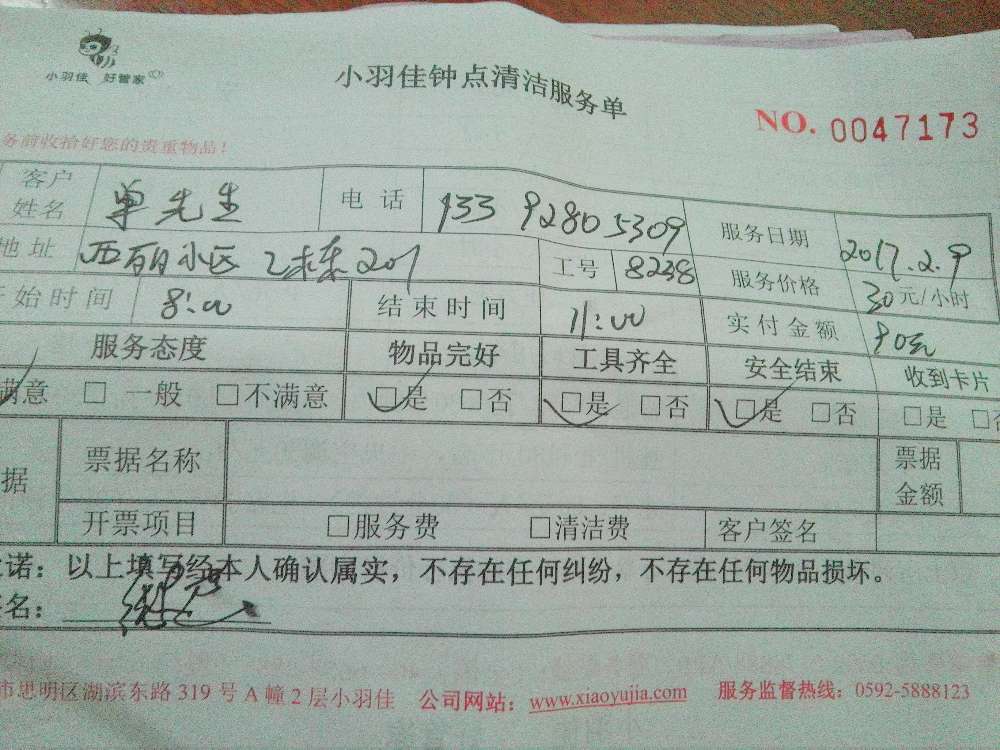 小羽佳 好管家
小羽佳钟点清洁服务单
NO. 0047173
务前收拾好您的贵重物品！
客户姓名 单先生 电话 133 9280 5309 服务日期 2017.2.9
地址 西丽小区 乙栋 201 工号 8238 服务价格 30元/小时
开始时间 8:00 结束时间 11:00 实付金额 90元
服务态度 物品完好 工具齐全 安全结束 收到卡片
满意 □ 一般 □不满意 □是 □否 □是 □否 □是 □否 □是 □否
据 票据名称 票据金额
开票项目 □服务费 □清洁费 客户签名
诺：以上填写经本人确认属实，不存在任何纠纷，不存在任何物品损坏。
名：
市思明区湖滨东路 319 号 A 幢 2 层小羽佳 公司网站：www.xiaoyujia.com 服务监督热线：0592-5888123